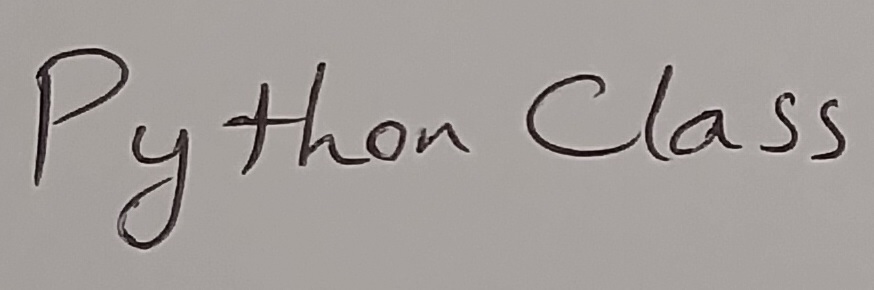 Python Class